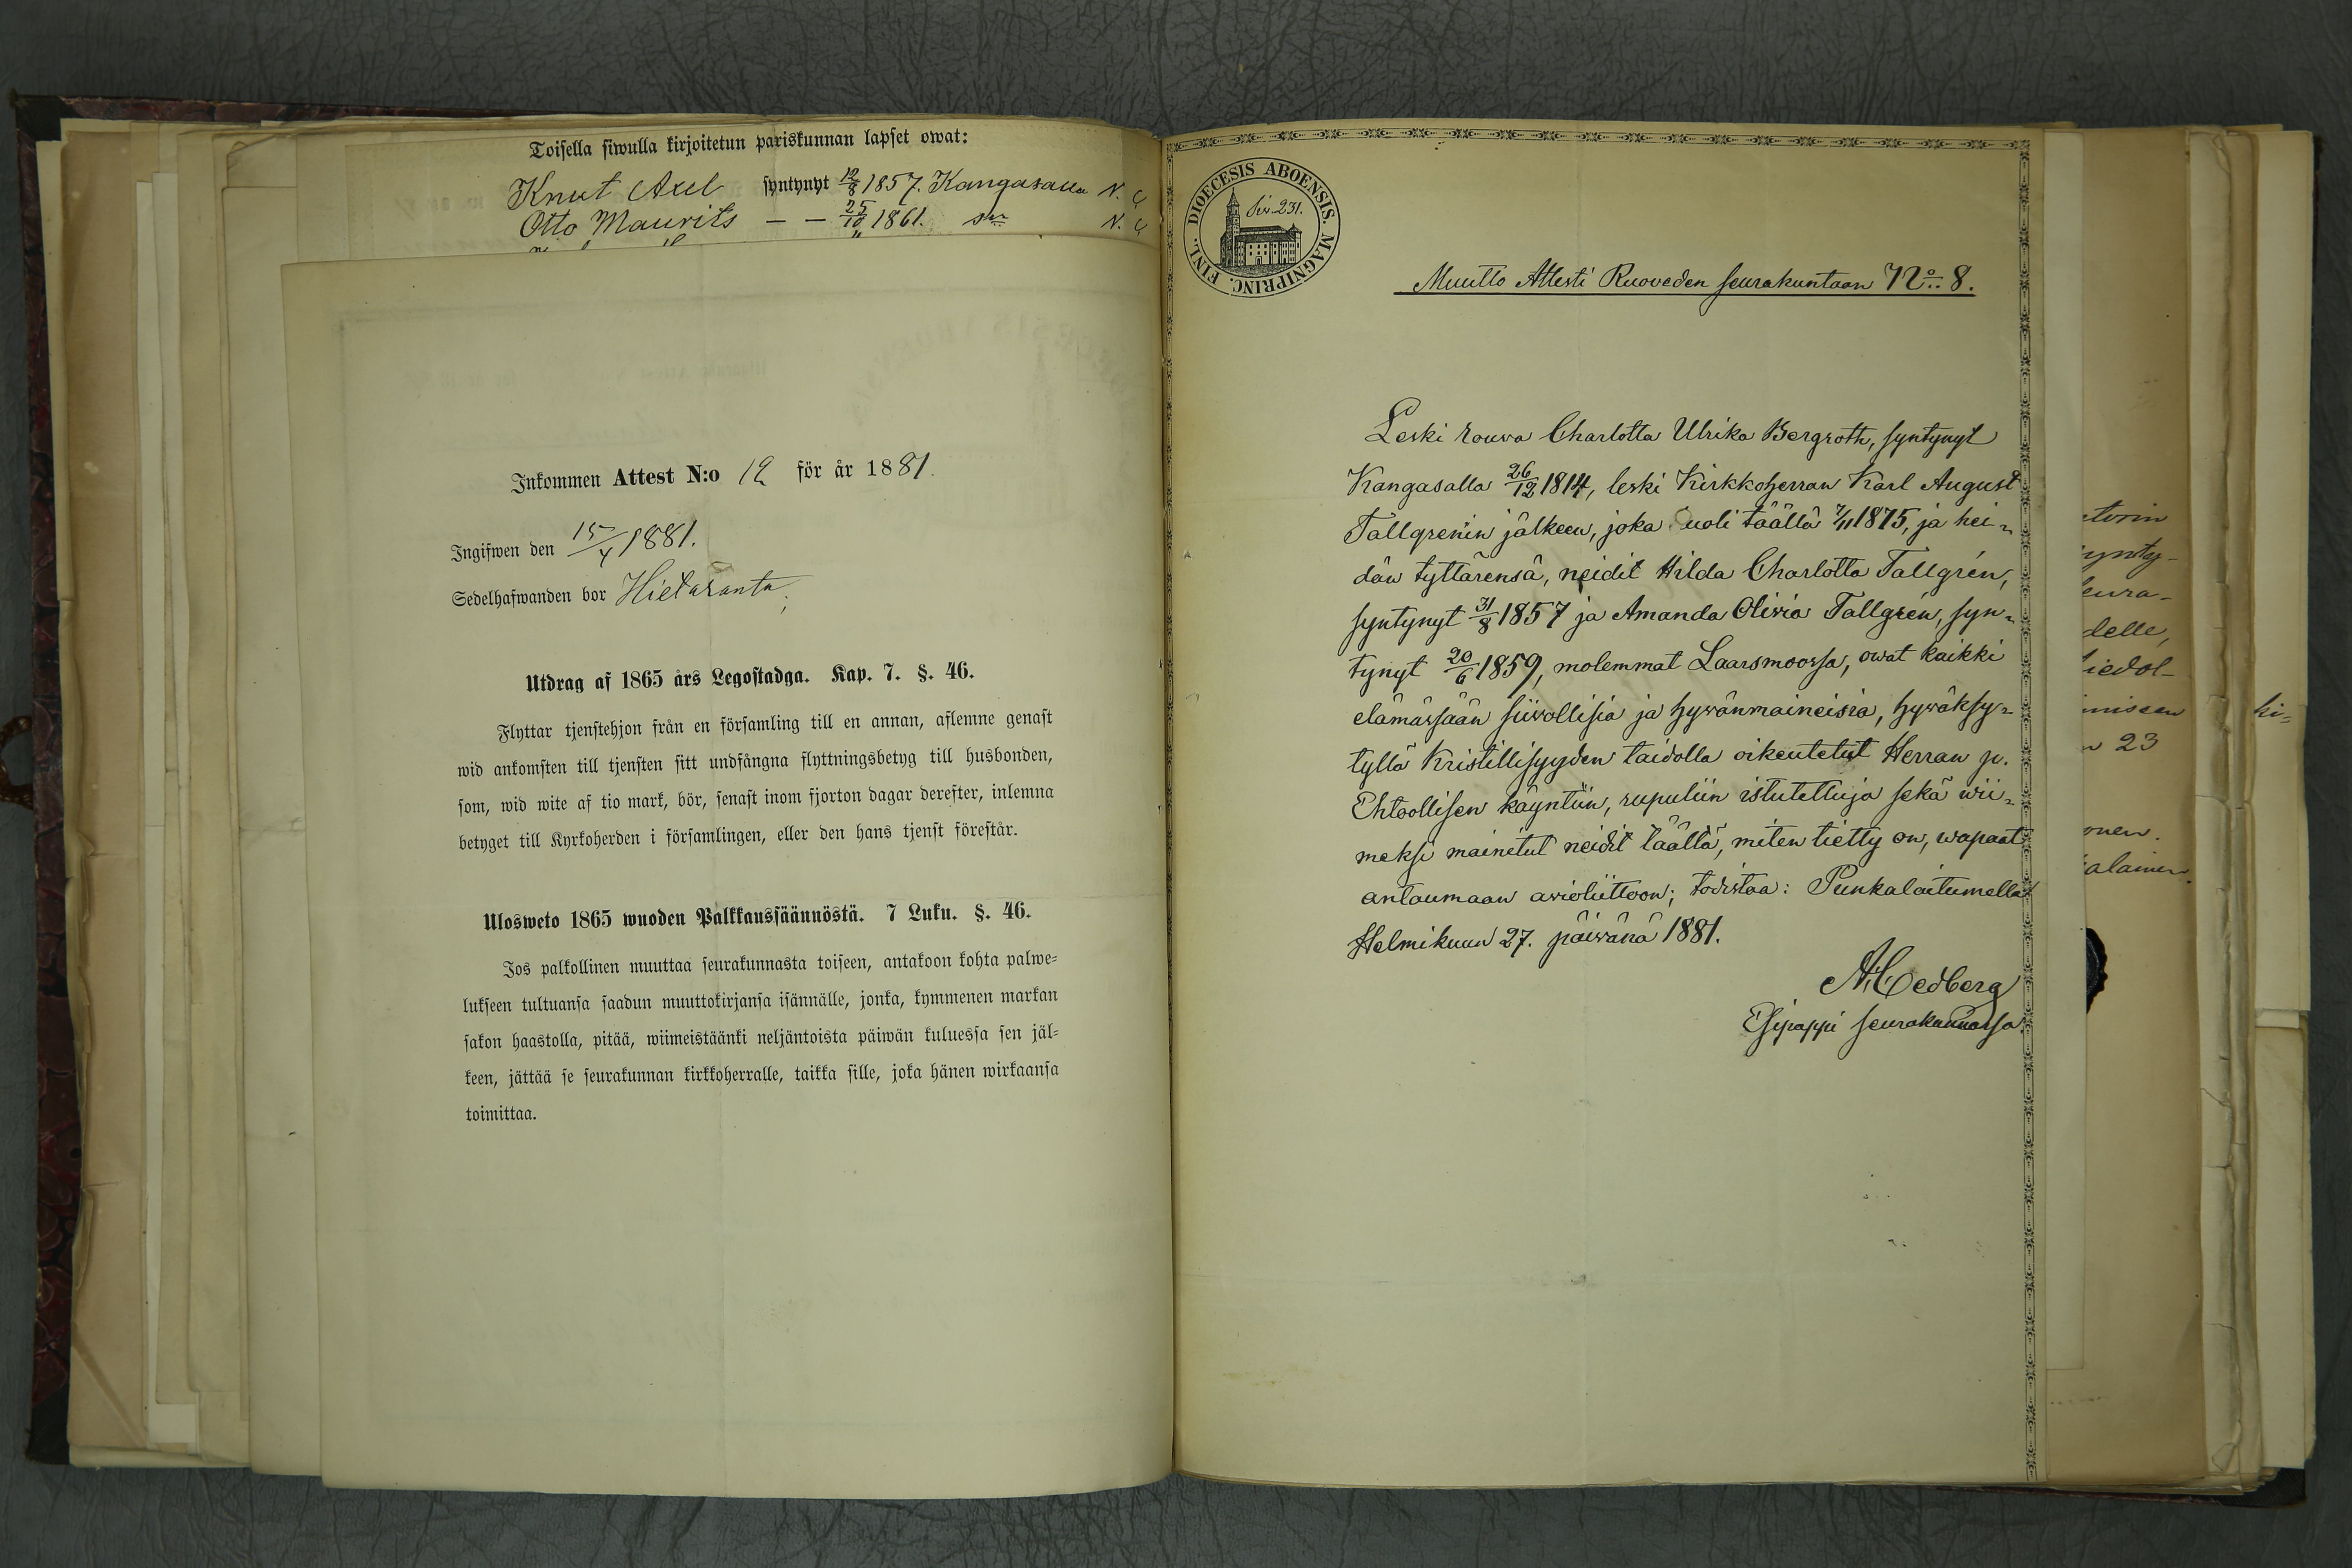 Toisella siwulla kirjoitetun pariskunnan lapset owat:
Knut Axel syntynyt 12/8 1857. Kangasalla N. C
Otto Maurits — — 25/10 1861. N. C
Inkommen Attest N:o 12 för år 1881.
Ingifwen den 15/4 1881.
Sedelhafwanden bor Hietaranta,
Utdrag af 1865 års Legostadga. Kap. 7. §. 46.
Flyttar tjenstehjon från en församling till en annan, aflemne genast
wid ankomsten till tjensten sitt undfångna flyttningsbetyg till husbonden,
som, wid wite af tio mark, bör, senast inom fjorton dagar derefter, inlemna
betyget till Kyrkoherden i församlingen, eller den hans tjenst förestår.
Ulosweto 1865 wuoden Palkkaussäännöstä. 7 Luku. §. 46.
Jos palkollinen muuttaa seurakunnasta toiseen, antakoon kohta palwe=
lukseen tultuansa saadun muuttokirjansa isännälle, jonka, kymmenen markan
sakon haastolla, pitää, wiimeistäänki neljäntoista päiwän kuluessa sen jäl=
keen, jättää se seurakunnan kirkkoherralle, taikka sille, joka hänen wirkaansa
toimittaa.
FINL. DIOECESIS ABOENSIS. MAGNIPRINC.
Siv. 231.
Muutto Attesti Ruoveden seurakuntaan No 8.
Leski rouva Charlotta Ulrika Bergroth, syntynyt
Kangasalla 26/12 1814, leski Kirkkoherran Karl August
Tallgrenin jälkeen, joka kuoli täällä 7/11 1875, ja hei-
dän tyttärensä, neidit Hilda Charlotta Tallgrén,
syntynyt 31/8 1857 ja Amanda Olivia Tallgrén, syn-
tynyt 20/6 1859, molemmat Laarsmoossa, owat kaikki
elämässään siivollisia ja hywänmaineisia, hywäksy-
tyllä Kristillisyyden taidolla oikeutetut Herran p.
Ehtoollisen käyntiin, rupuliin istutettuja sekä wii-
meksi mainitut neidit täältä, miten tietty on, wapaat
antaumaan avioliittoon; todistaa: Punkalaitumella
Helmikuun 27. päiwänä 1881.
A. Cedberg
Esipappi seurakunnassa.
ctorin
synty-
seura-
delle,
tiedol-
miseen
n 23
onen.
alainen.
ki=